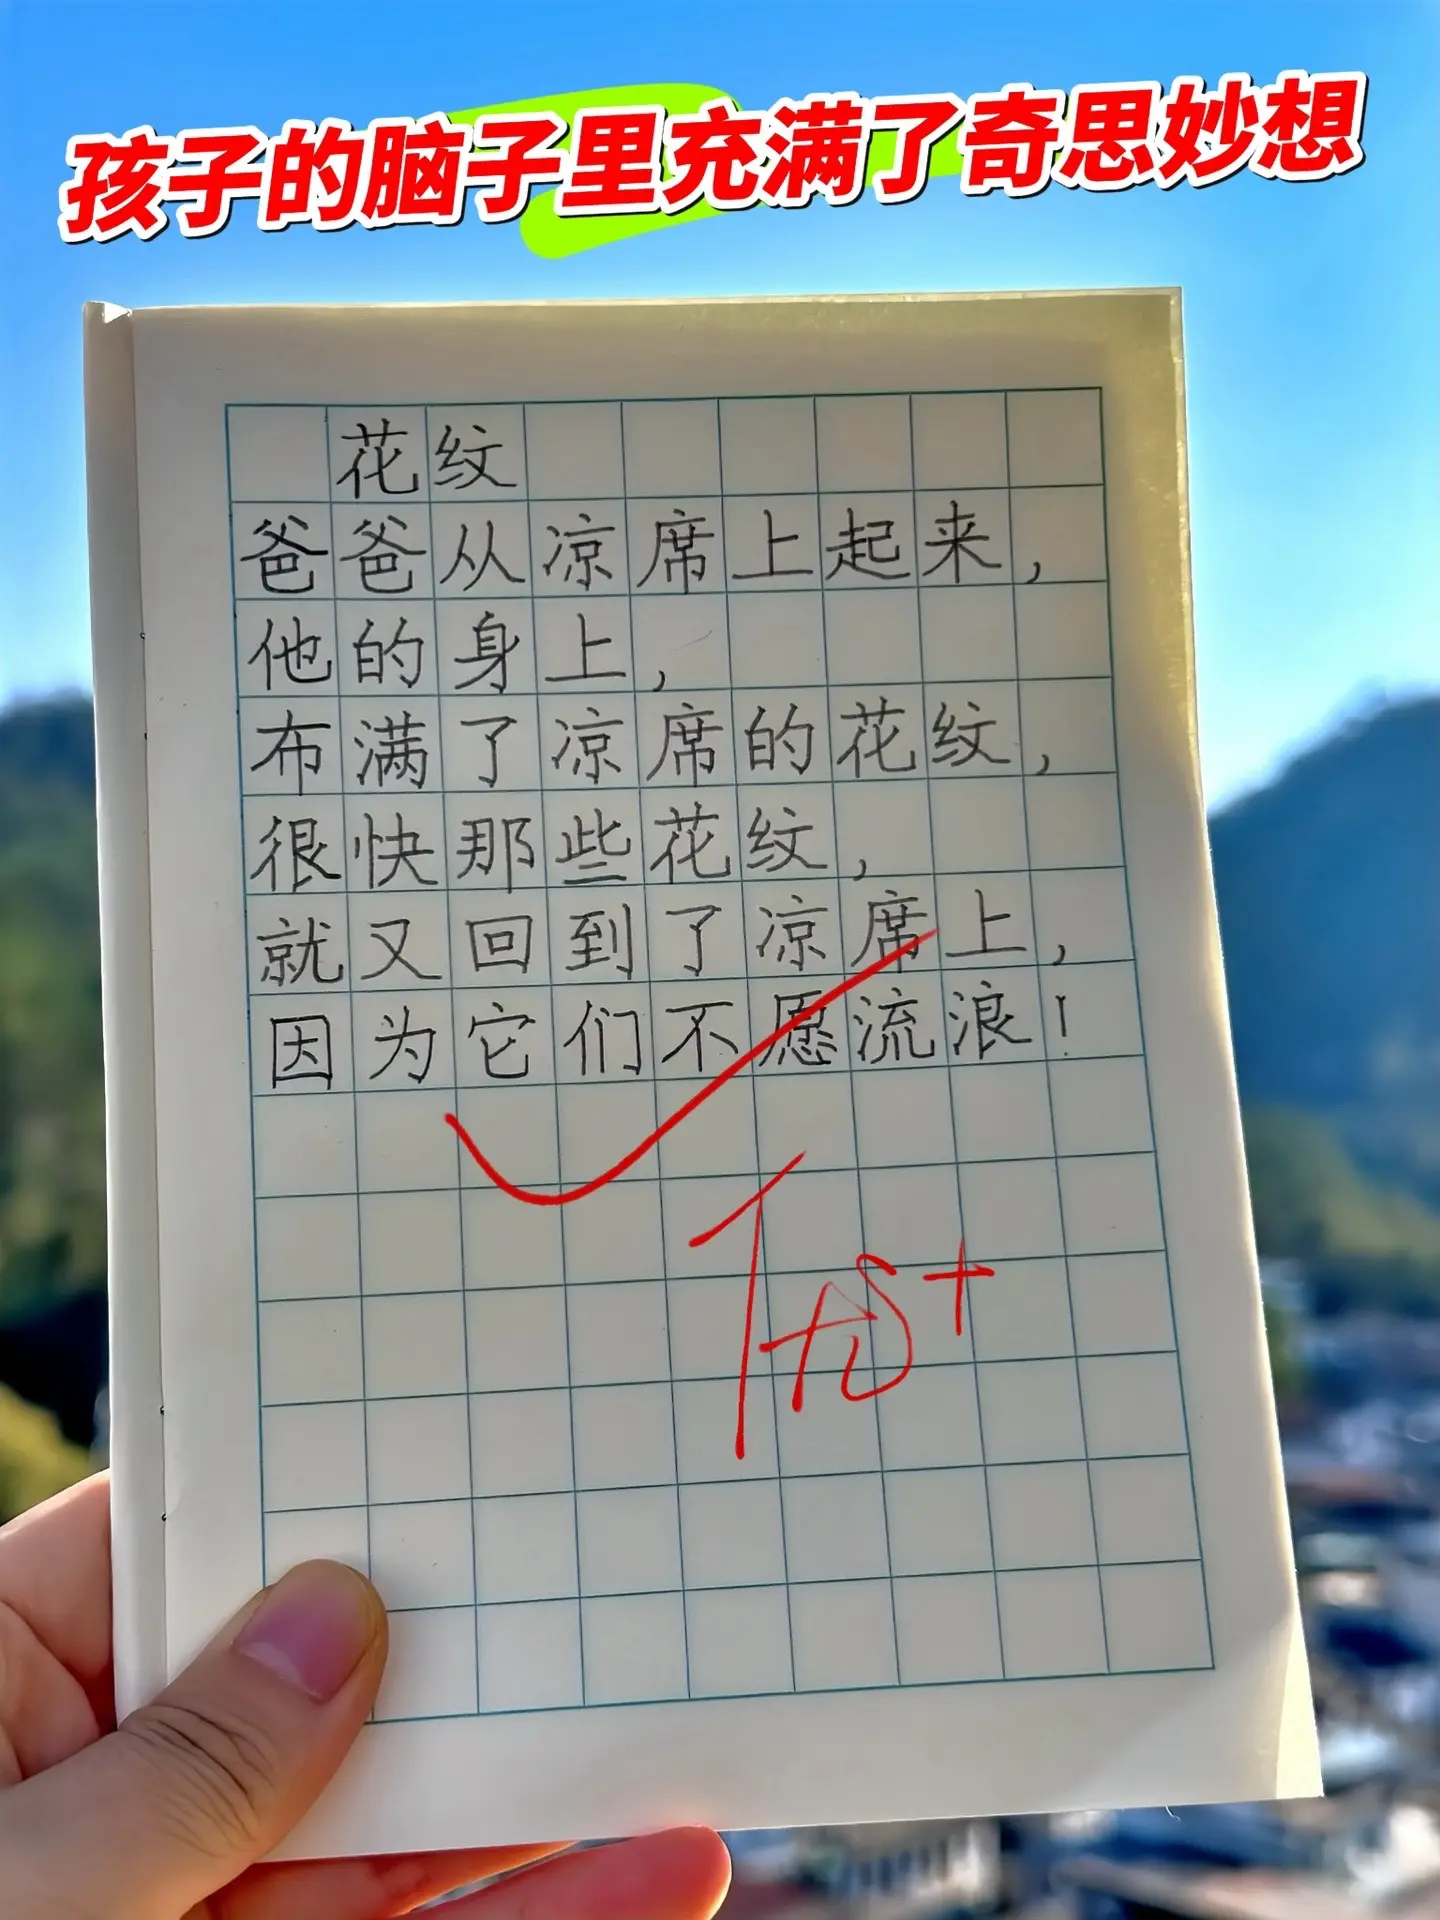 孩子的脑子里充满了奇思妙想
花纹
爸爸从凉席上起来，
他的身上，
布满了凉席的花纹，
很快那些花纹，
就又回到了凉席上，
因为它们不愿流浪！